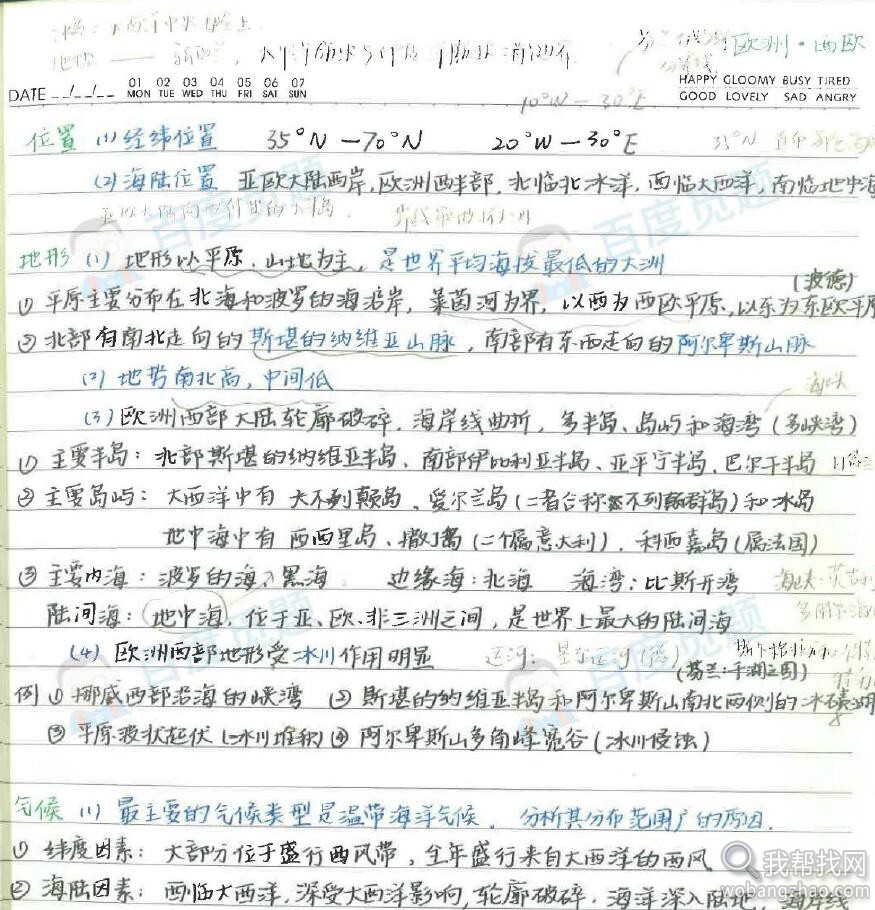 冰岛：大西洋中央海岭上
欧洲·西欧
HAPPY GLOOMY BUSY TIRED
GOOD LOVELY SAD ANGRY
DATE _/_/_ 01 MON 02 TUE 03 WED 04 THU 05 FRI 06 SAT 07 SUN
10°W — 30°E
位置 (1)经纬位置 35°N —70°N 20°W —30°E 35°N
(2)海陆位置 亚欧大陆西岸,欧洲西半部,北临北冰洋,西临大西洋,南临地中海
亚欧大陆向西伸出的大半岛.
地形 (1) 地形以平原、山地为主,是世界平均海拔最低的大洲
(波德)
① 平原主要分布在北海和波罗的海沿岸,莱茵河为界,以西为西欧平原,以东为东欧平原
② 北部有南北走向的斯堪的纳维亚山脉,南部有东西走向的阿尔卑斯山脉
(2) 地势南北高,中间低
海峡
(3)欧洲西部大陆轮廓破碎,海岸线曲折,多半岛、岛屿和海湾(多峡湾)
① 主要半岛:北部斯堪的纳维亚半岛、南部伊比利亚半岛、亚平宁半岛、巴尔干半岛
② 主要岛屿:大西洋中有 大不列颠岛、爱尔兰岛(二者合称不列颠群岛)和冰岛
地中海中有 西西里岛、撒丁岛(二个属意大利)、科西嘉岛(属法国)
③ 主要内海:波罗的海、黑海 边缘海:北海 海湾:比斯开湾 海峡:英吉利
陆间海:地中海,位于亚、欧、非三洲之间,是世界上最大的陆间海
(4)欧洲西部地形受冰川作用明显 运河:基尔运河(德)
(芬兰:千湖之国)
例 ① 挪威西部沿海的峡湾 ② 斯堪的纳维亚半岛和阿尔卑斯山南北两侧的冰碛湖
③ 平原波状起伏(冰川堆积) ④ 阿尔卑斯山多角峰宽谷(冰川侵蚀)
气候 (1) 最主要的气候类型是温带海洋气候. 分析其分布范围广的原因.
① 纬度因素:大部分位于盛行西风带,全年盛行来自大西洋的西风
② 海陆因素:西临大西洋,深受大西洋影响,轮廓破碎,海洋深入陆地,海岸线
百度觅题
百度觅题
百度觅题
百度觅题
我帮找网
wobangzhao.com